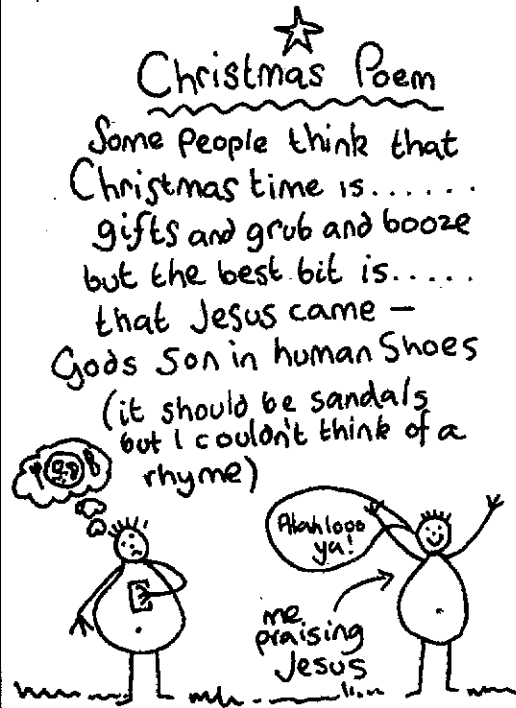 Christmas Poem
Some people think that
Christmas time is......
gifts and grub and booze
but the best bit is.....
that Jesus came –
Gods Son in human Shoes
(it should be sandals
but I couldn't think of a
rhyme)
Alahlooo
ya!
me
praising
Jesus